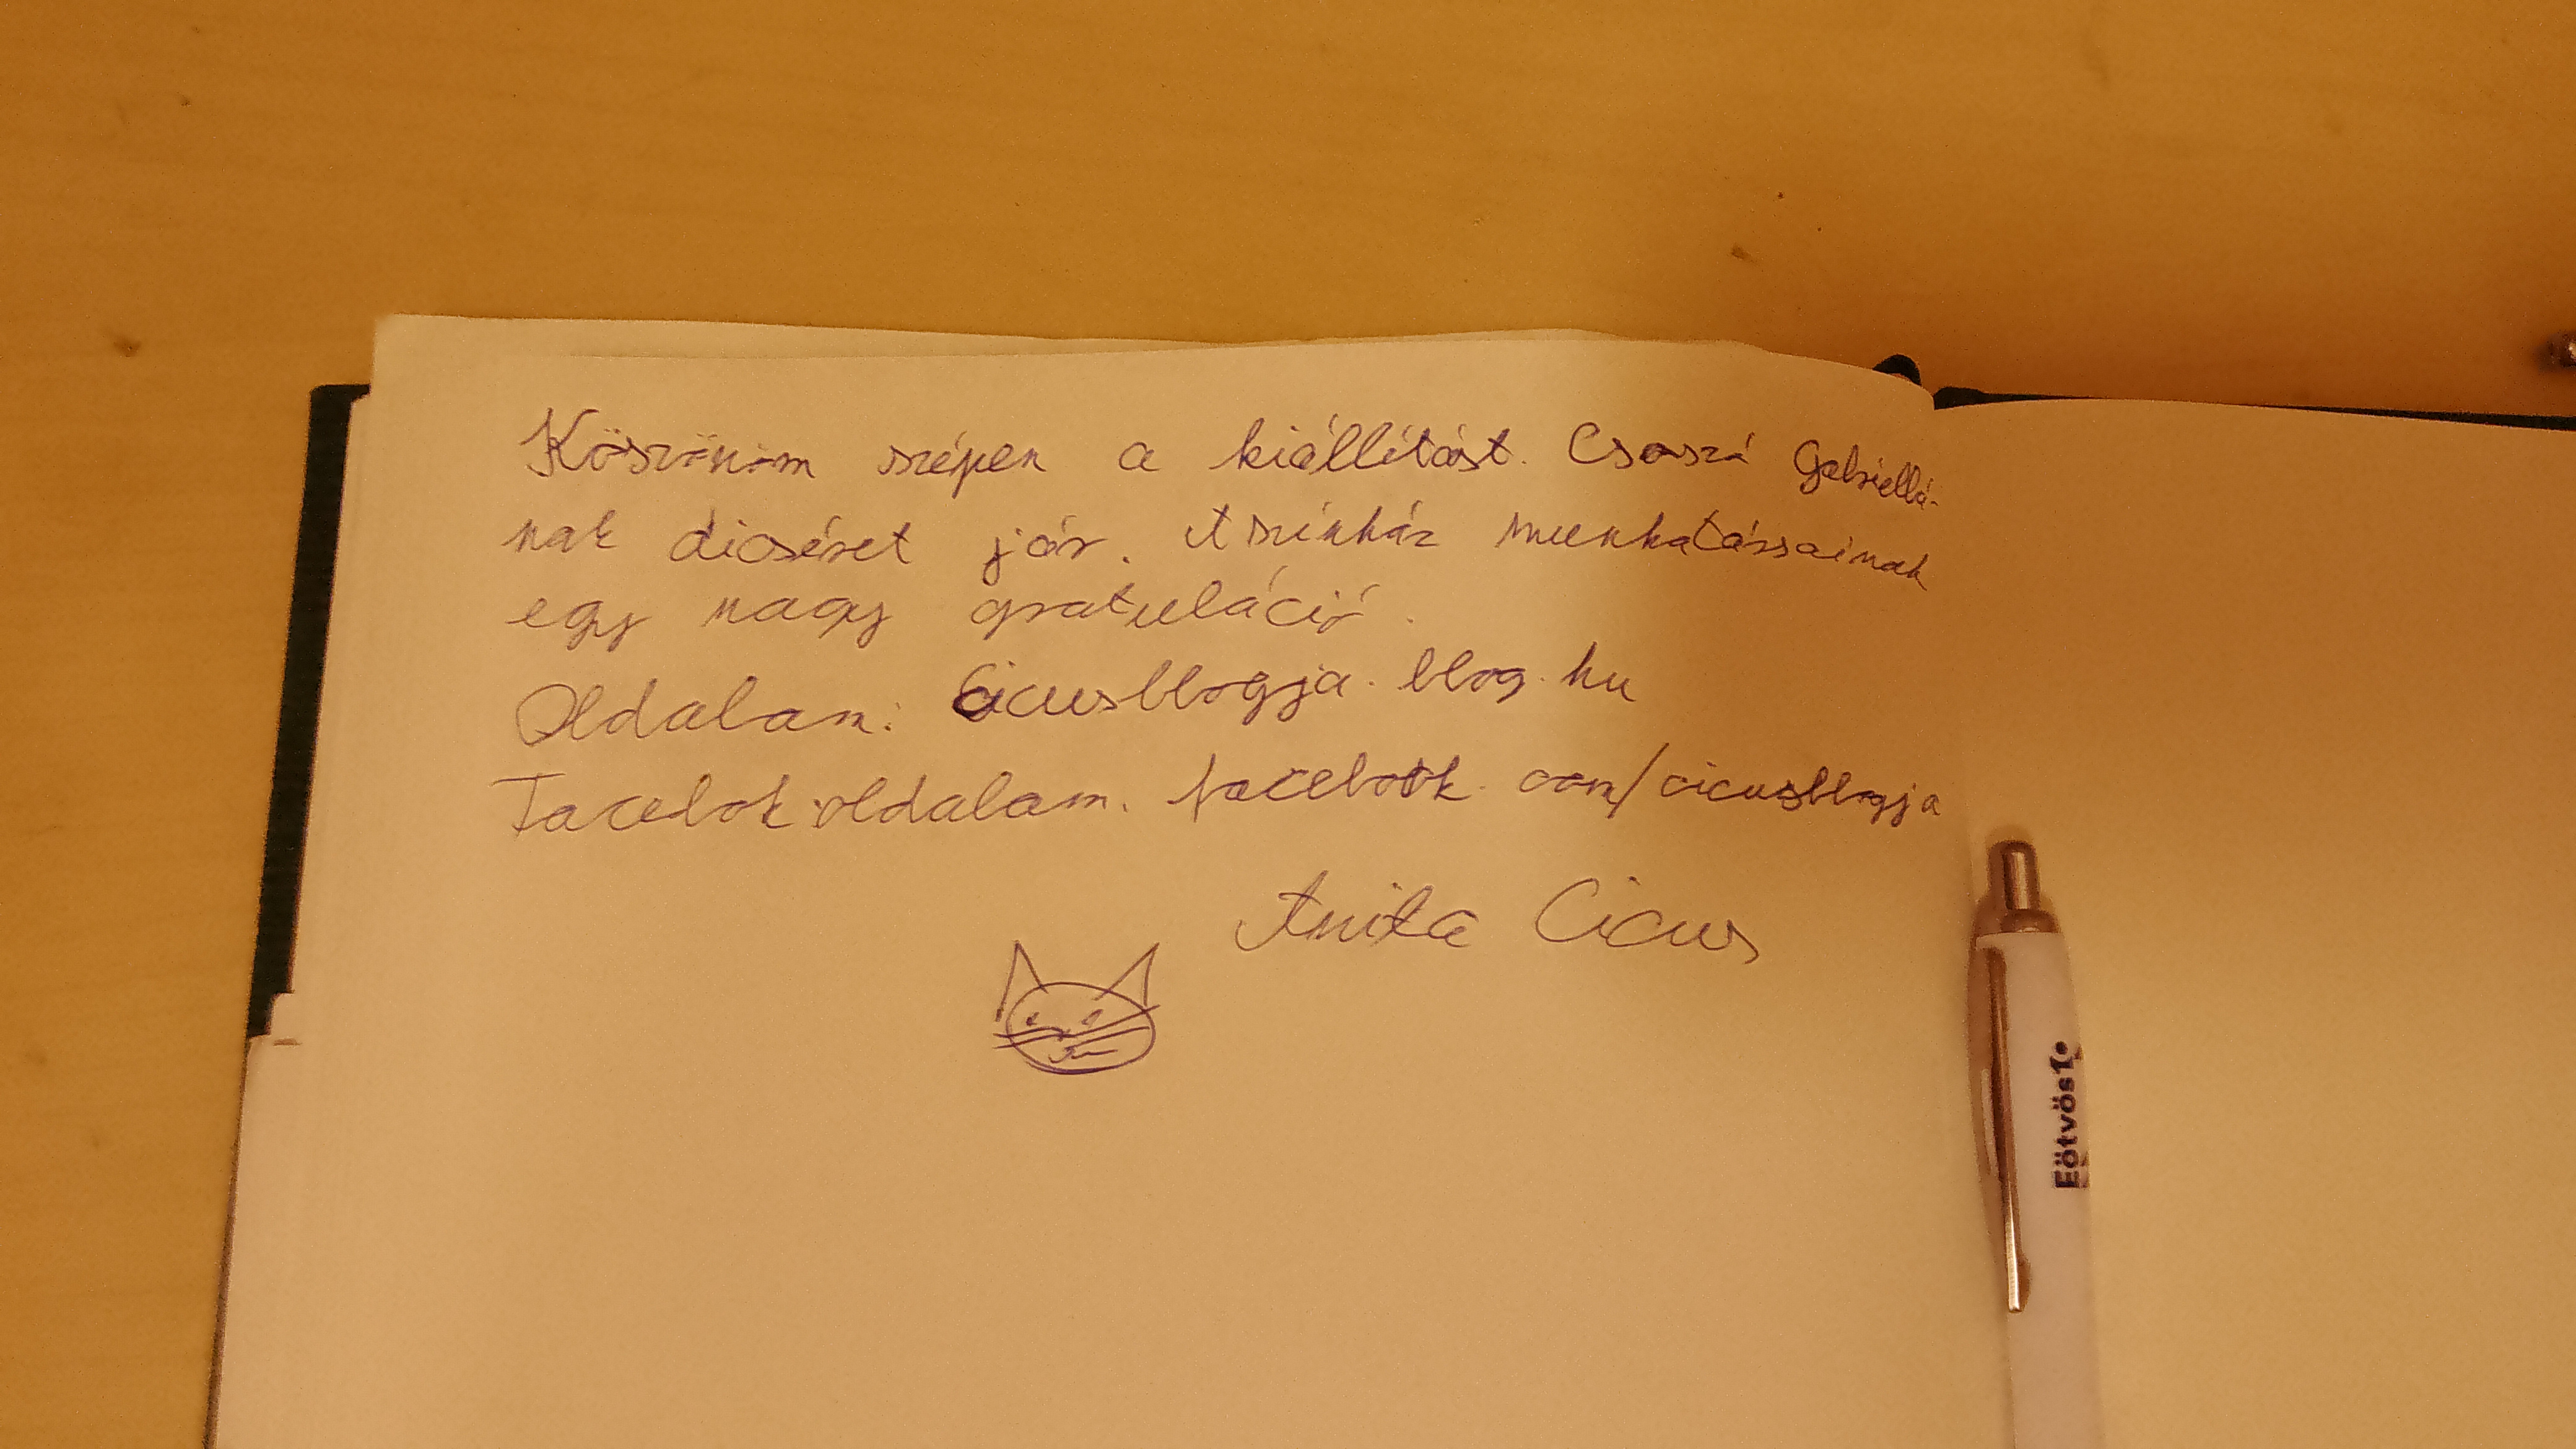 Köszönöm szépen a kiállítást. Csaszá Gabriellá-
nak dicséret jár. A színház munkatársainak
egy nagy gratuláció.
Oldalam: Cicusblogja.blog.hu
Facebok oldalam. facebook.com/cicusblogja
Anita Cicus
Eötvös10